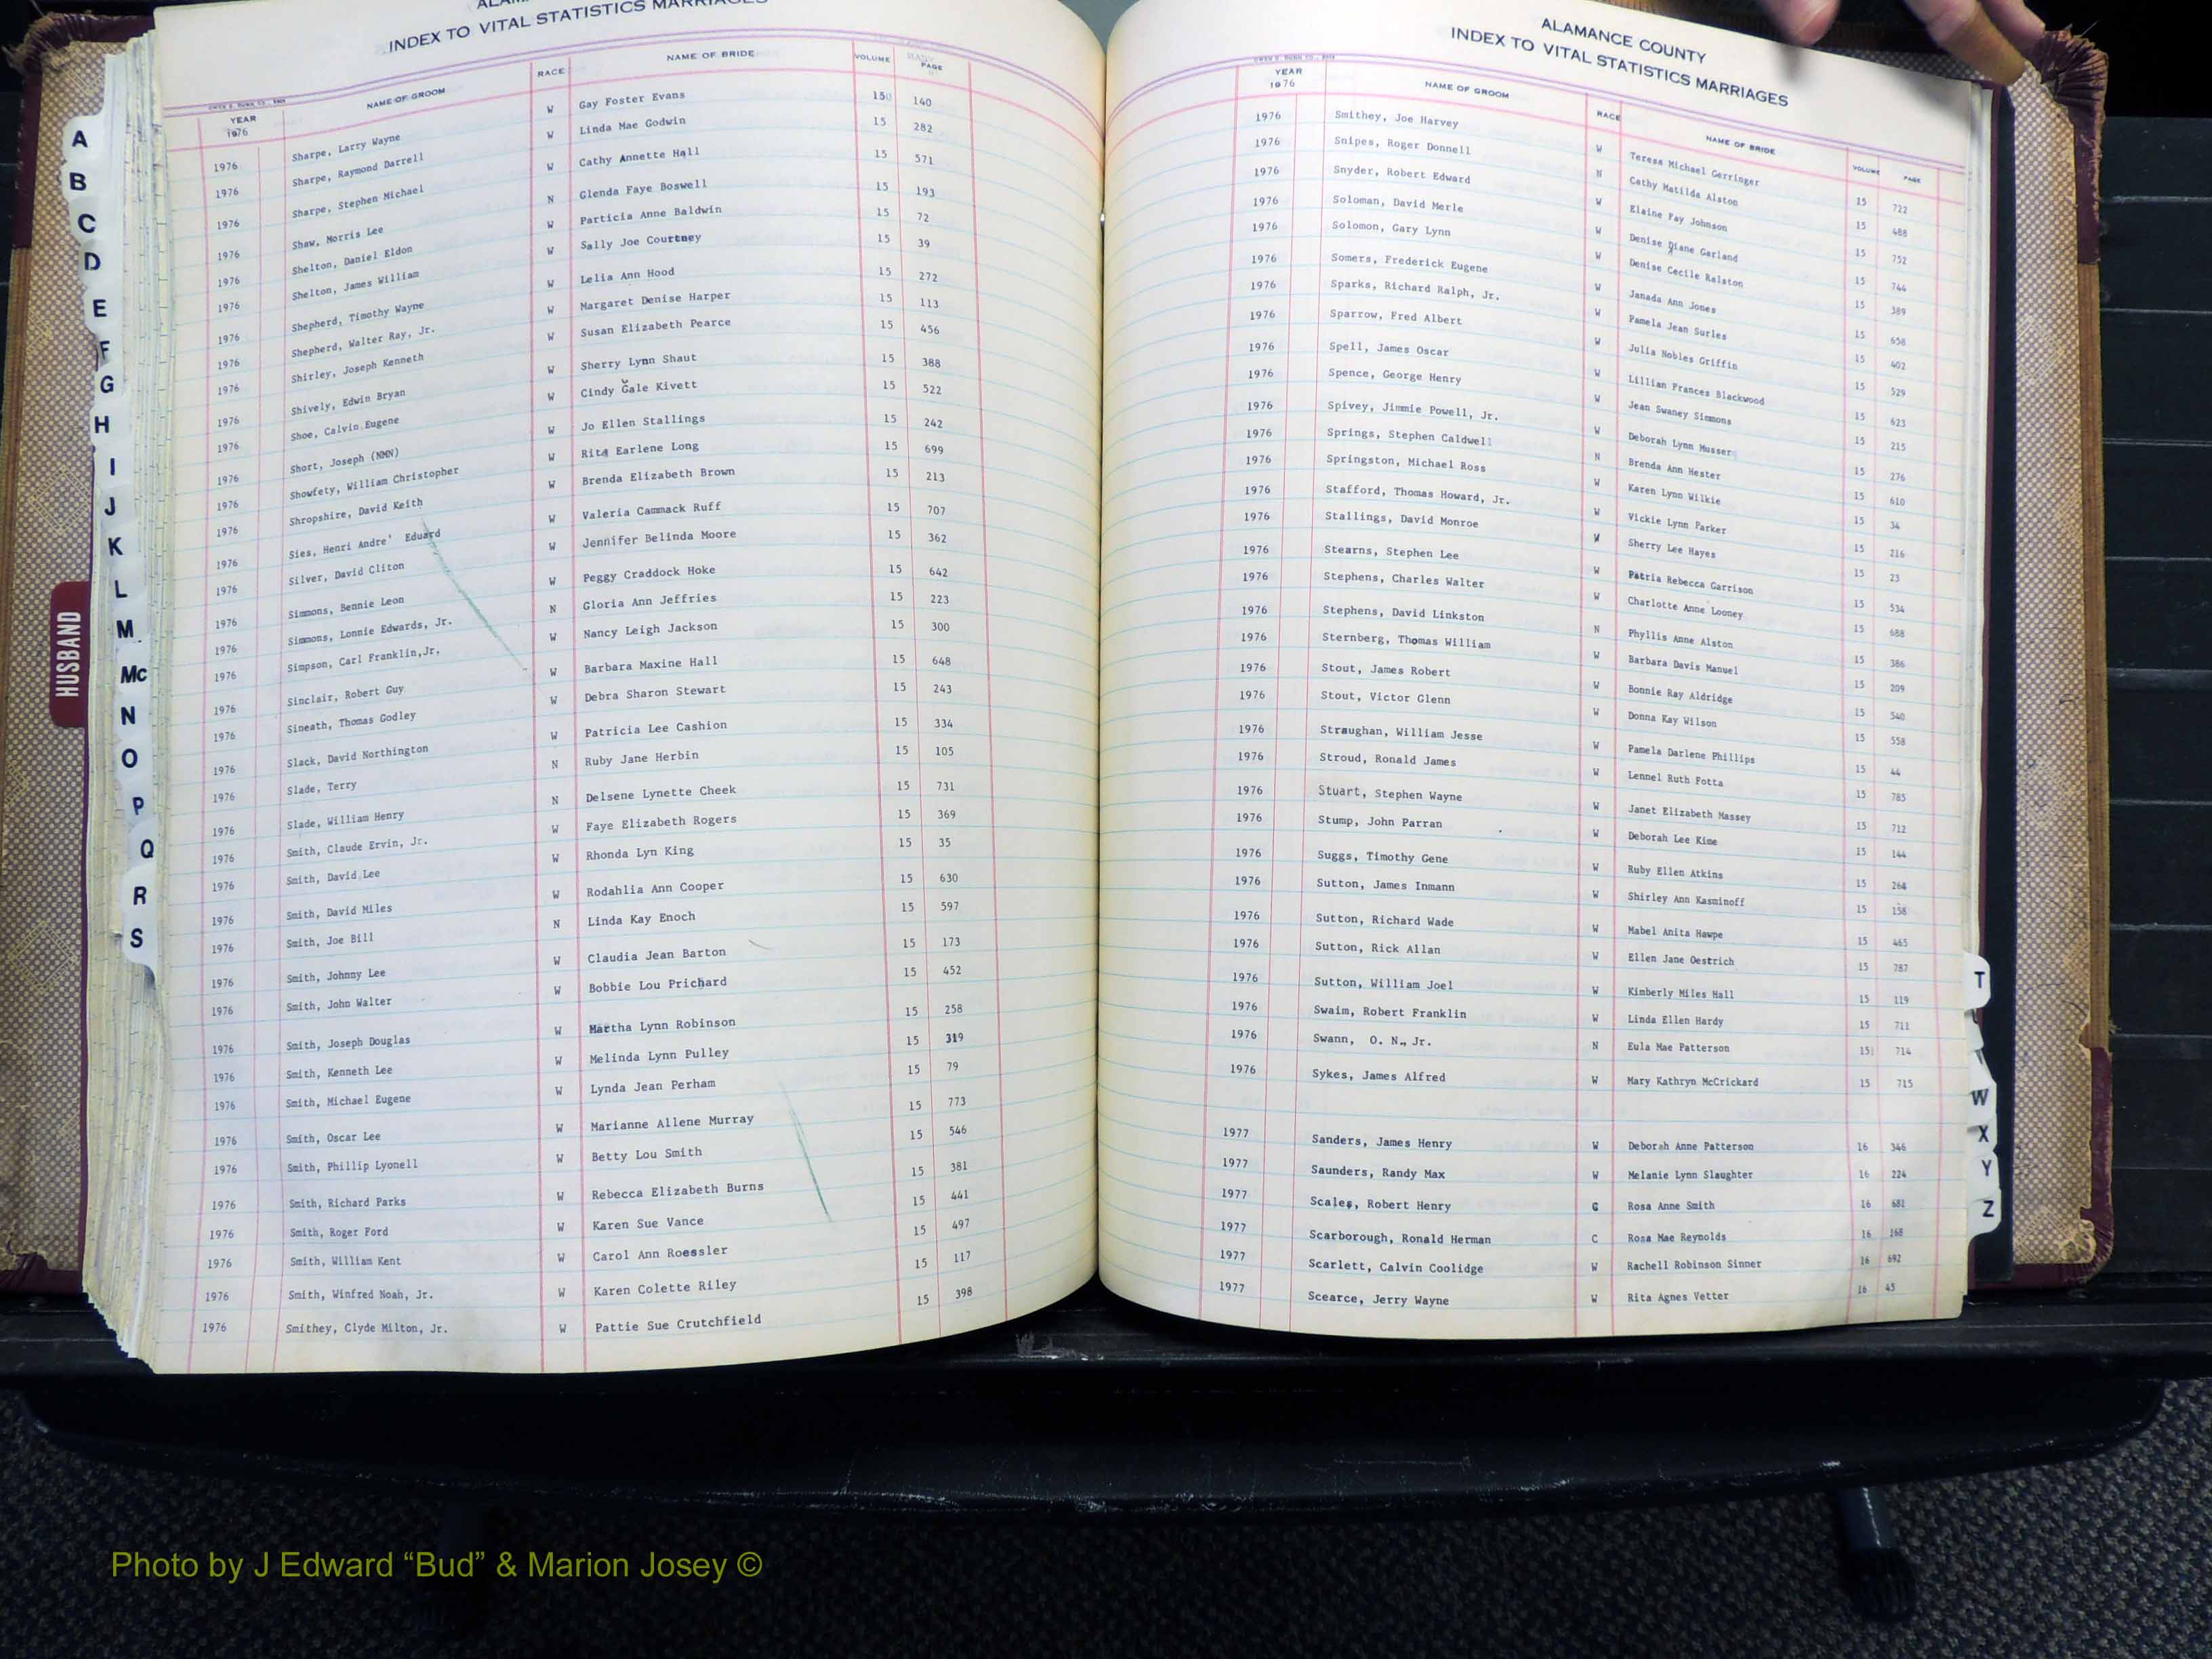 INDEX TO VITAL STATISTICS MARRIAGES
YEAR 1976 NAME OF GROOM RACE NAME OF BRIDE VOLUME PAGE
1976 Sharpe, Larry Wayne W Gay Foster Evans 150 140
1976 Sharpe, Raymond Darrell W Linda Mae Godwin 15 282
1976 Sharpe, Stephen Michael W Cathy Annette Hall 15 571
1976 Shaw, Morris Lee N Glenda Faye Boswell 15 193
1976 Shelton, Daniel Eldon W Particia Anne Baldwin 15 72
1976 Shelton, James William W Sally Joe Courtney 15 39
1976 Shepherd, Timothy Wayne W Lelia Ann Hood 15 272
1976 Shepherd, Walter Ray, Jr. W Margaret Denise Harper 15 113
1976 Shirley, Joseph Kenneth W Susan Elizabeth Pearce 15 456
1976 Shively, Edwin Bryan W Sherry Lynn Shaut 15 388
1976 Shoe, Calvin Eugene W Cindy Gale Kivett 15 522
1976 Short, Joseph (NMN) W Jo Ellen Stallings 15 242
1976 Showfety, William Christopher W Rita Earlene Long 15 699
1976 Shropshire, David Keith W Brenda Elizabeth Brown 15 213
1976 Sies, Henri Andre' Eduard W Valeria Cammack Ruff 15 707
1976 Silver, David Cliton W Jennifer Belinda Moore 15 362
1976 Simmons, Bennie Leon W Peggy Craddock Hoke 15 642
1976 Simmons, Lonnie Edwards, Jr. N Gloria Ann Jeffries 15 223
1976 Simpson, Carl Franklin,Jr. W Nancy Leigh Jackson 15 300
1976 Sinclair, Robert Guy W Barbara Maxine Hall 15 648
1976 Sineath, Thomas Godley W Debra Sharon Stewart 15 243
1976 Slack, David Northington W Patricia Lee Cashion 15 334
1976 Slade, Terry N Ruby Jane Herbin 15 105
1976 Slade, William Henry N Delsene Lynette Cheek 15 731
1976 Smith, Claude Ervin, Jr. W Faye Elizabeth Rogers 15 369
1976 Smith, David Lee W Rhonda Lyn King 15 35
1976 Smith, David Miles W Rodahlia Ann Cooper 15 630
1976 Smith, Joe Bill N Linda Kay Enoch 15 597
1976 Smith, Johnny Lee W Claudia Jean Barton 15 173
1976 Smith, John Walter W Bobbie Lou Prichard 15 452
1976 Smith, Joseph Douglas W Martha Lynn Robinson 15 258
1976 Smith, Kenneth Lee W Melinda Lynn Pulley 15 319
1976 Smith, Michael Eugene W Lynda Jean Perham 15 79
1976 Smith, Oscar Lee W Marianne Allene Murray 15 773
1976 Smith, Phillip Lyonell W Betty Lou Smith 15 546
1976 Smith, Richard Parks W Rebecca Elizabeth Burns 15 381
1976 Smith, Roger Ford W Karen Sue Vance 15 441
1976 Smith, William Kent W Carol Ann Roessler 15 497
1976 Smith, Winfred Noah, Jr. W Karen Colette Riley 15 117
1976 Smithey, Clyde Milton, Jr. W Pattie Sue Crutchfield 15 398
A
B
C
D
E
F
G
H
I
J
K
L
M
Mc
N
O
P
Q
R
S
HUSBAND
ALAMANCE COUNTY
INDEX TO VITAL STATISTICS MARRIAGES
YEAR 1976 NAME OF GROOM RACE NAME OF BRIDE VOLUME PAGE
1976 Smithey, Joe Harvey W Teresa Michael Gerringer 15 722
1976 Snipes, Roger Donnell N Cathy Matilda Alston 15 488
1976 Snyder, Robert Edward W Elaine Fay Johnson 15 752
1976 Soloman, David Merle W Denise Diane Garland 15 744
1976 Solomon, Gary Lynn W Denise Cecile Ralston 15 389
1976 Somers, Frederick Eugene W Janada Ann Jones 15 658
1976 Sparks, Richard Ralph, Jr. W Pamela Jean Surles 15 402
1976 Sparrow, Fred Albert W Julia Nobles Griffin 15 529
1976 Spell, James Oscar W Lillian Frances Blackwood 15 623
1976 Spence, George Henry W Jean Swaney Simmons 15 215
1976 Spivey, Jimmie Powell, Jr. W Deborah Lynn Musser 15 276
1976 Springs, Stephen Caldwell N Brenda Ann Hester 15 610
1976 Springston, Michael Ross W Karen Lynn Wilkie 15 34
1976 Stafford, Thomas Howard, Jr. W Vickie Lynn Parker 15 216
1976 Stallings, David Monroe W Sherry Lee Hayes 15 23
1976 Stearns, Stephen Lee W Patria Rebecca Garrison 15 534
1976 Stephens, Charles Walter W Charlotte Anne Looney 15 688
1976 Stephens, David Linkston N Phyllis Anne Alston 15 386
1976 Sternberg, Thomas William W Barbara Davis Manuel 15 209
1976 Stout, James Robert W Bonnie Ray Aldridge 15 540
1976 Stout, Victor Glenn W Donna Kay Wilson 15 558
1976 Straughan, William Jesse W Pamela Darlene Phillips 15 44
1976 Stroud, Ronald James W Lennel Ruth Fotta 15 785
1976 Stuart, Stephen Wayne W Janet Elizabeth Massey 15 712
1976 Stump, John Parran W Deborah Lee Kime 15 144
1976 Suggs, Timothy Gene W Ruby Ellen Atkins 15 264
1976 Sutton, James Inmann W Shirley Ann Kasminoff 15 158
1976 Sutton, Richard Wade W Mabel Anita Hawpe 15 465
1976 Sutton, Rick Allan W Ellen Jane Oestrich 15 787
1976 Sutton, William Joel W Kimberly Miles Hall 15 119
1976 Swaim, Robert Franklin W Linda Ellen Hardy 15 711
1976 Swann, O. N., Jr. N Eula Mae Patterson 15 714
1976 Sykes, James Alfred W Mary Kathryn McCrickard 15 715
1977 Sanders, James Henry W Deborah Anne Patterson 16 346
1977 Saunders, Randy Max W Melanie Lynn Slaughter 16 224
1977 Scales, Robert Henry G Rosa Anne Smith 16 681
1977 Scarborough, Ronald Herman C Rosa Mae Reynolds 16 168
1977 Scarlett, Calvin Coolidge W Rachell Robinson Sinner 16 692
1977 Scearce, Jerry Wayne W Rita Agnes Vetter 16 45
T
W
X
Y
Z
Photo by J Edward “Bud” & Marion Josey ©